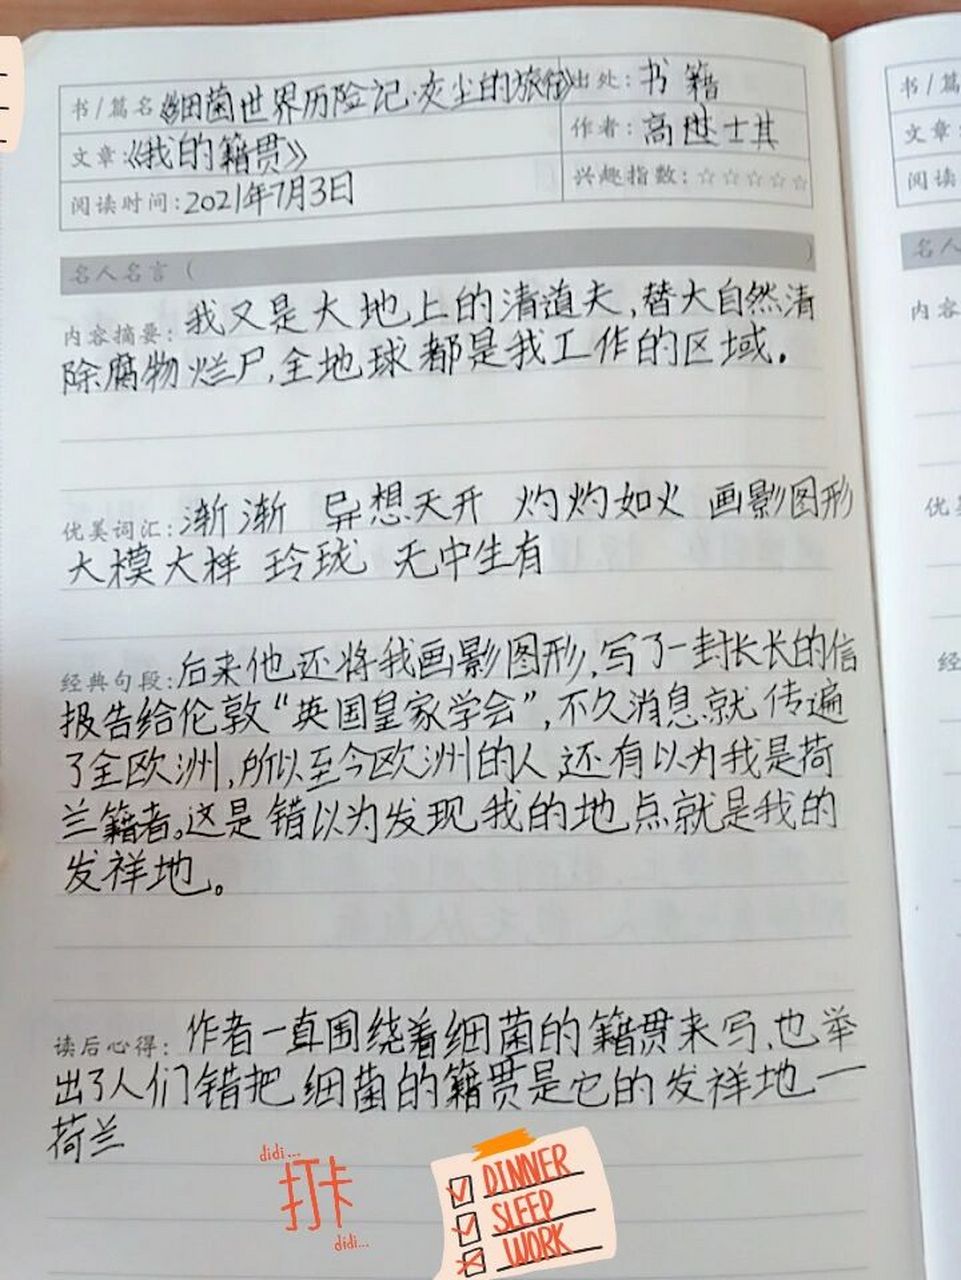 书/篇名《细菌世界历险记·灰尘的旅行》
出处:书籍
文章:《我的籍贯》
作者:高士其
阅读时间:2021年7月3日
兴趣指数:☆☆☆☆☆
名人名言( )
内容摘要:我又是大地上的清道夫,替大自然清
除腐物烂尸,全地球都是我工作的区域.
优美词汇:渐渐 异想天开 灼灼如火 画影图形
大模大样 玲珑 无中生有
经典句段:后来他还将我画影图形,写了一封长长的信
报告给伦敦“英国皇家学会”,不久消息就传遍
了全欧洲,所以至今欧洲的人还有以为我是荷
兰籍者。这是错以为发现我的地点就是我的
发祥地。
读后心得:作者一直围绕着细菌的籍贯来写,也举
出了人们错把细菌的籍贯是它的发祥地一
荷兰
didi...
打卡
didi...
DINNER
SLEEP
WORK
书/篇
文章:
阅读
名人
内容
优美
经